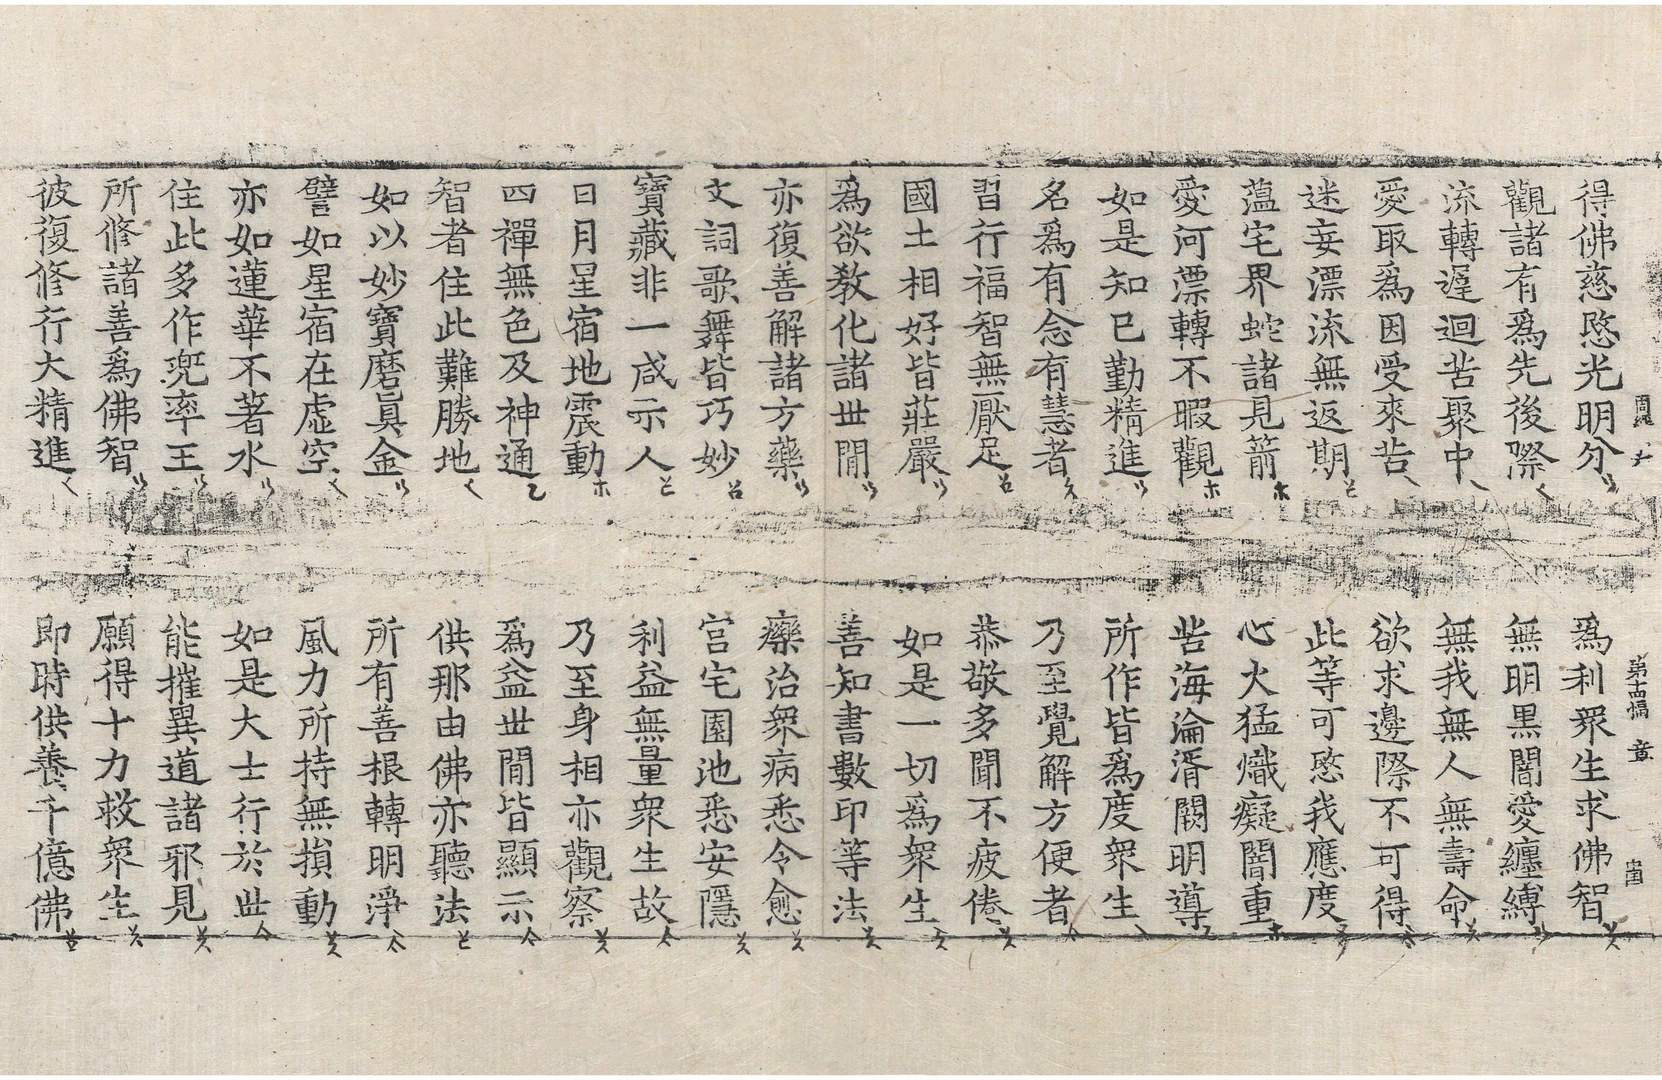 周經
第十四幅 章
得佛慈愍光明分 爲利衆生求佛智
觀諸有爲先後際 無明黑闇愛纏縛
流轉遲迴苦聚中 無我無人無壽命
愛取爲因受來苦 欲求邊際不可得
迷妄漂流無返期 此等可愍我應度
薀宅界蛇諸見箭 心火猛熾癡闇重
愛河漂轉不暇觀 苦海淪湑闕明導
如是知已勤精進 所作皆爲度衆生
名爲有念有慧者 乃至覺解方便者
習行福智無厭足 恭敬多聞不疲倦
國土相好皆莊嚴 如是一切爲衆生
爲欲教化諸世間 善知書數印等法
亦復善解諸方藥 療治衆病悉令愈
文詞歌舞皆巧妙 宮宅園池悉安隱
寶藏非一咸示人 利益無量衆生故
日月星宿地震動 乃至身相亦觀察
四禪無色及神通 爲益世間皆顯示
智者住此難勝地 供那由佛亦聽法
如以妙寶磨眞金 所有善根轉明淨
譬如星宿在虛空 風力所持無損動
亦如蓮華不著水 如是大士行於世
住此多作兜率王 能摧異道諸邪見
所修諸善爲佛智 願得十力救衆生
彼復修行大精進 即時供養千億佛